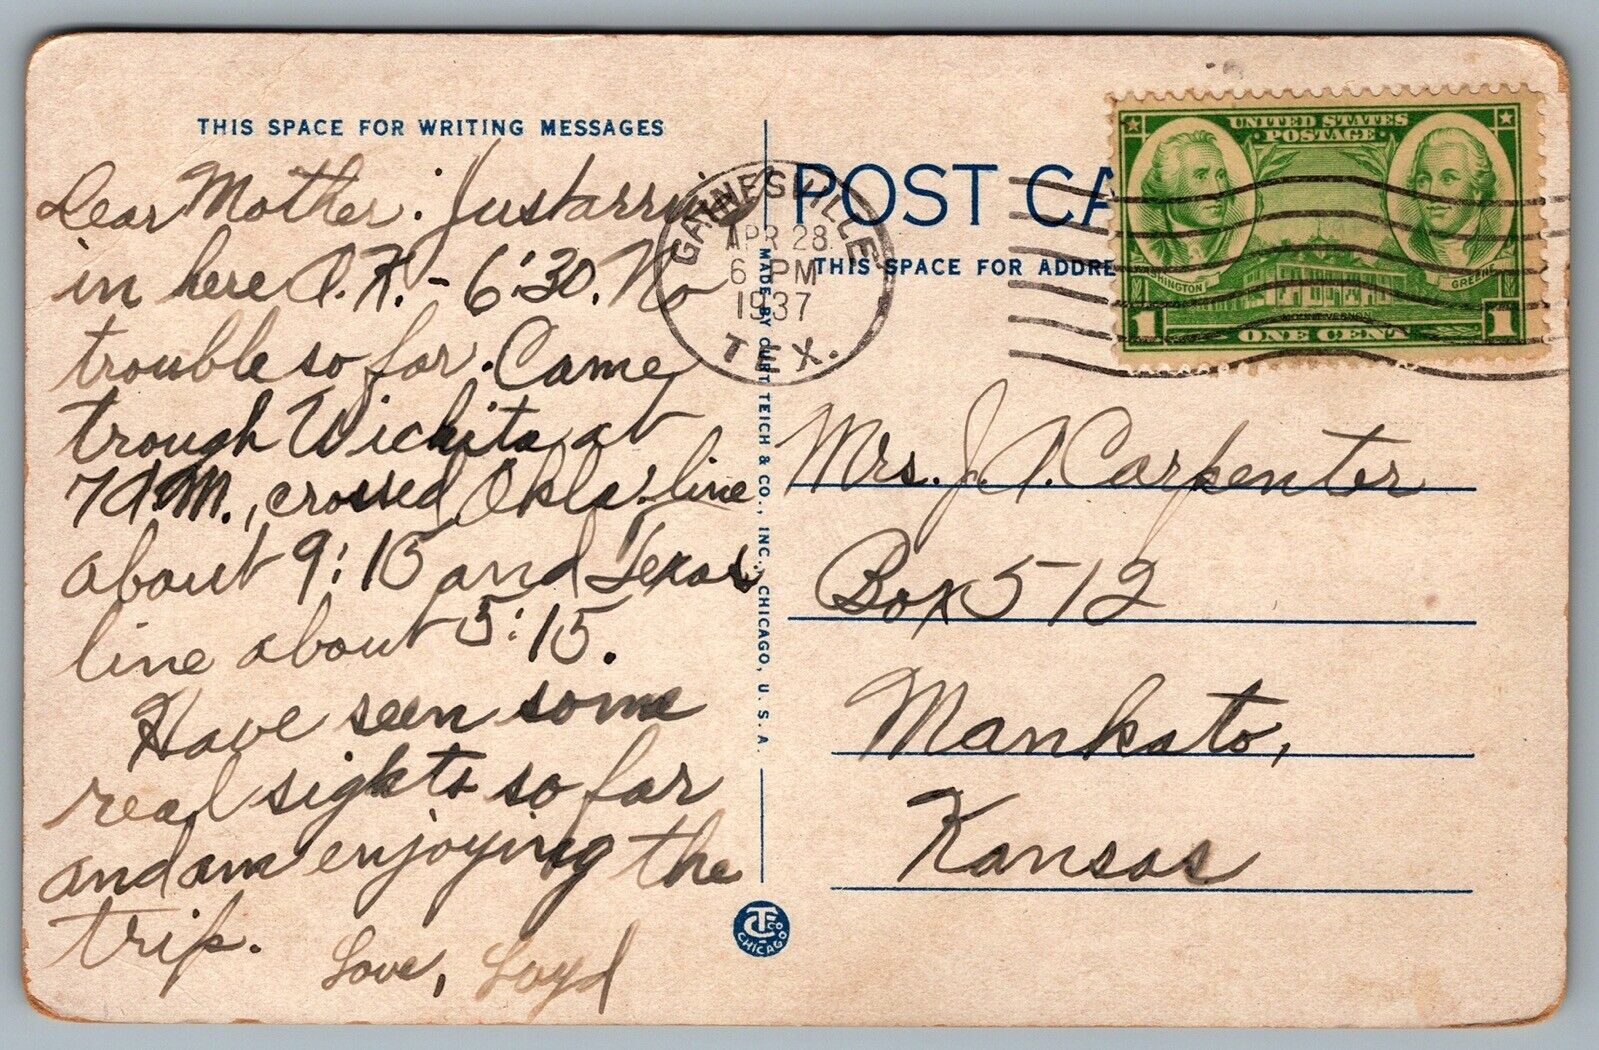 THIS SPACE FOR WRITING MESSAGES
Dear Mother: Just arrived
in here O.K. - 6:30. No
trouble so far. Came
trough Wichita at
7 A.M., crossed Okla. line
about 9:15 and Texas
line about 5:15.
Have seen some
real sights so far
and am enjoying the
trip.
Love, Loyd
GAINESVILLE
APR 28
6 PM
1937
TEX.
MADE BY CURT TEICH & CO., INC., CHICAGO, U.S.A.
CT CO
CHICAGO
POST CA
THIS SPACE FOR ADDRE
UNITED STATES
POSTAGE
WASHINGTON
GREENE
MOUNT VERNON
1 ONE CENT 1
Mrs. J. A. Carpenter
Box 512
Mankato,
Kansas